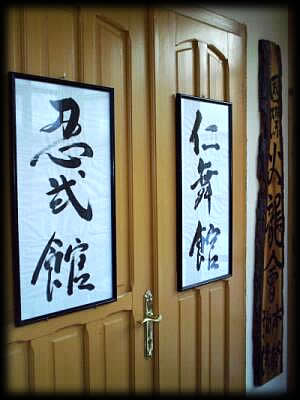 忍武館
仁舞館
國際火龍會